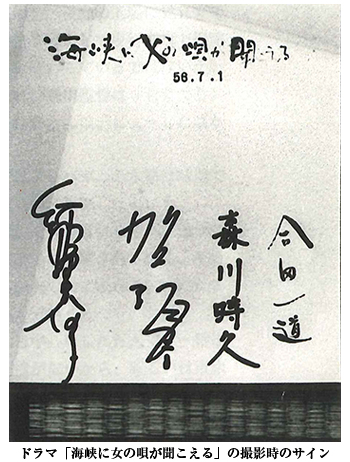 海峡に女の唄が聞こえる
58.7.1
合田一道
森川時久
ドラマ「海峡に女の唄が聞こえる」の撮影時のサイン